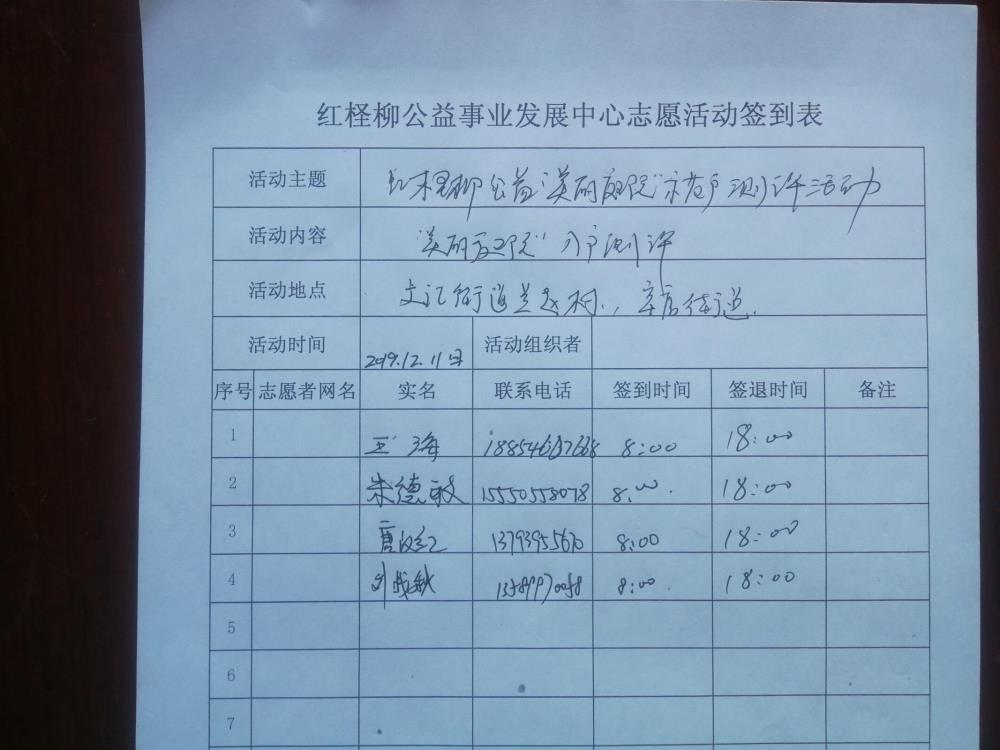 红柽柳公益事业发展中心志愿活动签到表
活动主题 红柽柳公益"美丽庭院"示范户测评活动
活动内容 "美丽庭院"入户测评
活动地点 文汇街道 村、辛店街道
活动时间 2019.12.11日 活动组织者
序号 志愿者网名 实名 联系电话 签到时间 签退时间 备注
1 海 8:00 18:00
2 朱德敏 15550558078 8:00 18:00
3 唐 8:00 18:00
4 刘 8:00 18:00
5
6
7